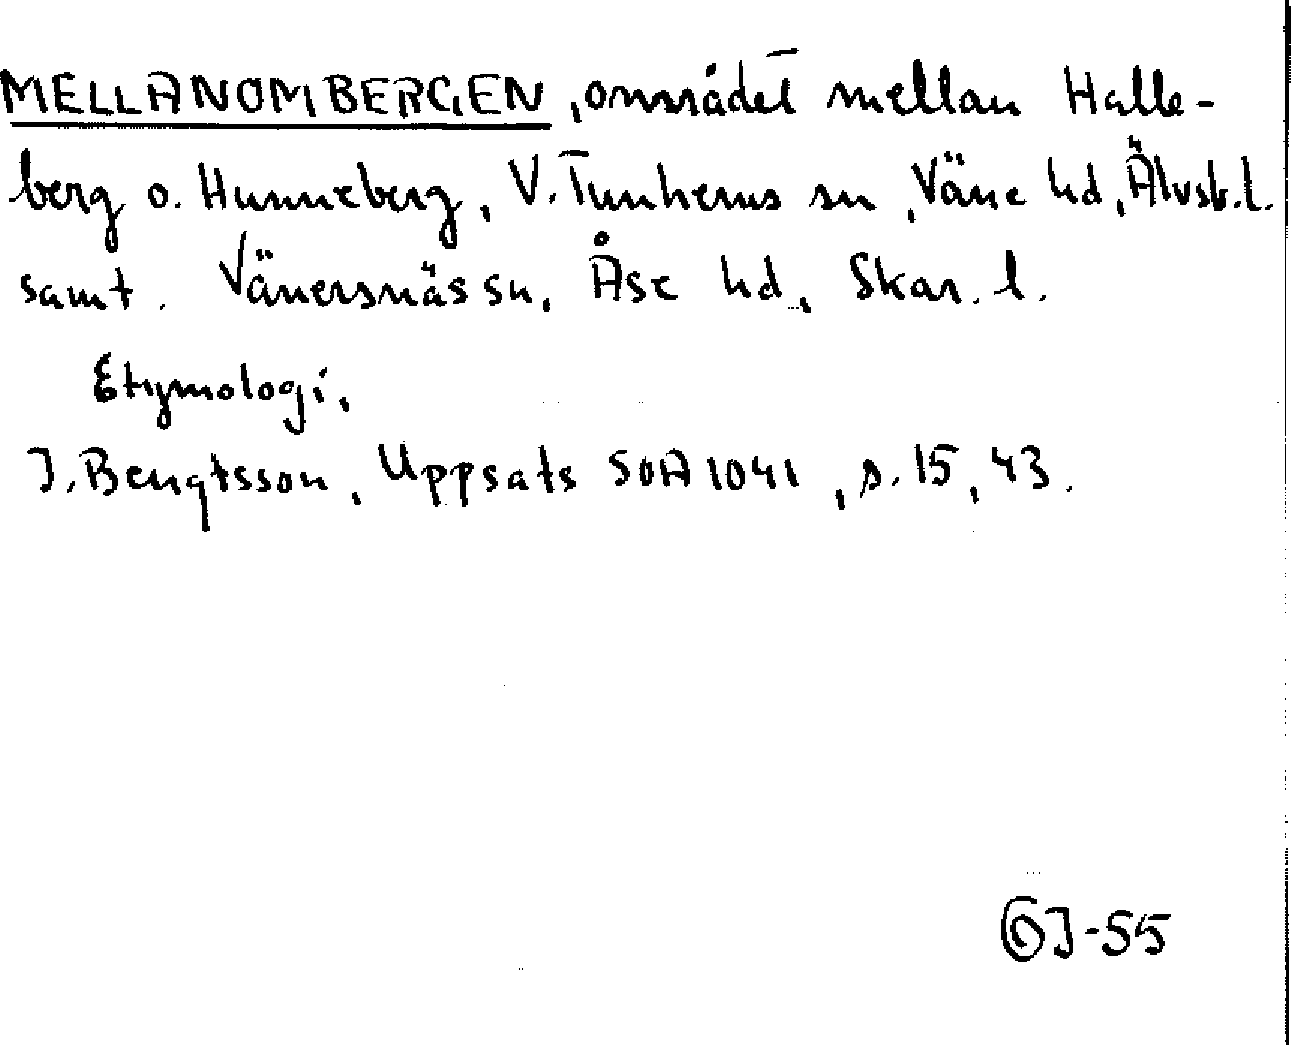 MELLANOMBERGEN, området mellan Halle-
berg o. Hunneberg, V. Tunhems sn, Väne hd, Älvsb. l.
samt. Vänersnäs sn, Åse hd, Skar. l.
Etymologi.
J. Bengtsson, Uppsats SOA 1041, s. 15, 43.
GJ-55